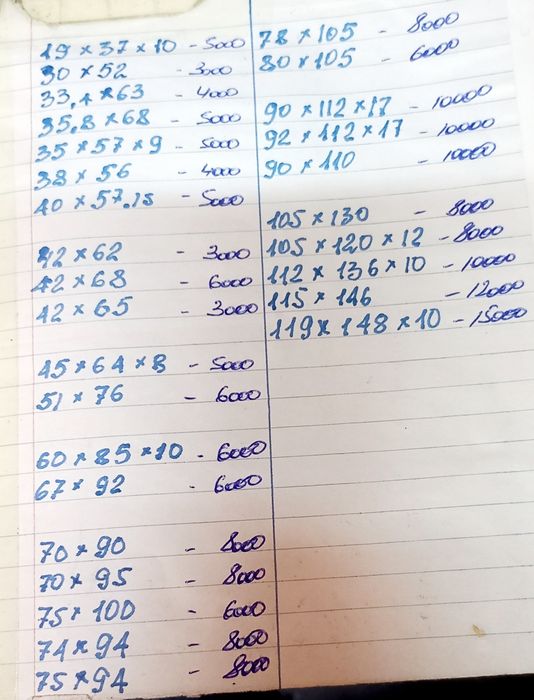 19 × 37 × 10 - 5000
30 × 52 - 3000
33,4 × 63 - 4000
35.8 × 68 - 5000
35 × 57 × 9 - 5000
38 × 56 - 4000
40 × 57.15 - 5000
42 × 62 - 3000
42 × 68 - 6000
42 × 65 - 3000
45 × 64 × 8 - 5000
51 × 76 - 6000
60 × 85 × 10 - 6000
67 × 92 - 6000
70 × 90 - 8000
70 × 95 - 8000
75 × 100 - 6000
74 × 94 - 8000
75 × 94 - 8000
78 × 105 - 8000
80 × 105 - 6000
90 × 112 × 17 - 10000
92 × 112 × 17 - 10000
90 × 110 - 10000
105 × 130 - 8000
105 × 120 × 12 - 8000
112 × 136 × 10 - 10000
115 × 146 - 12000
119 × 148 × 10 - 15000